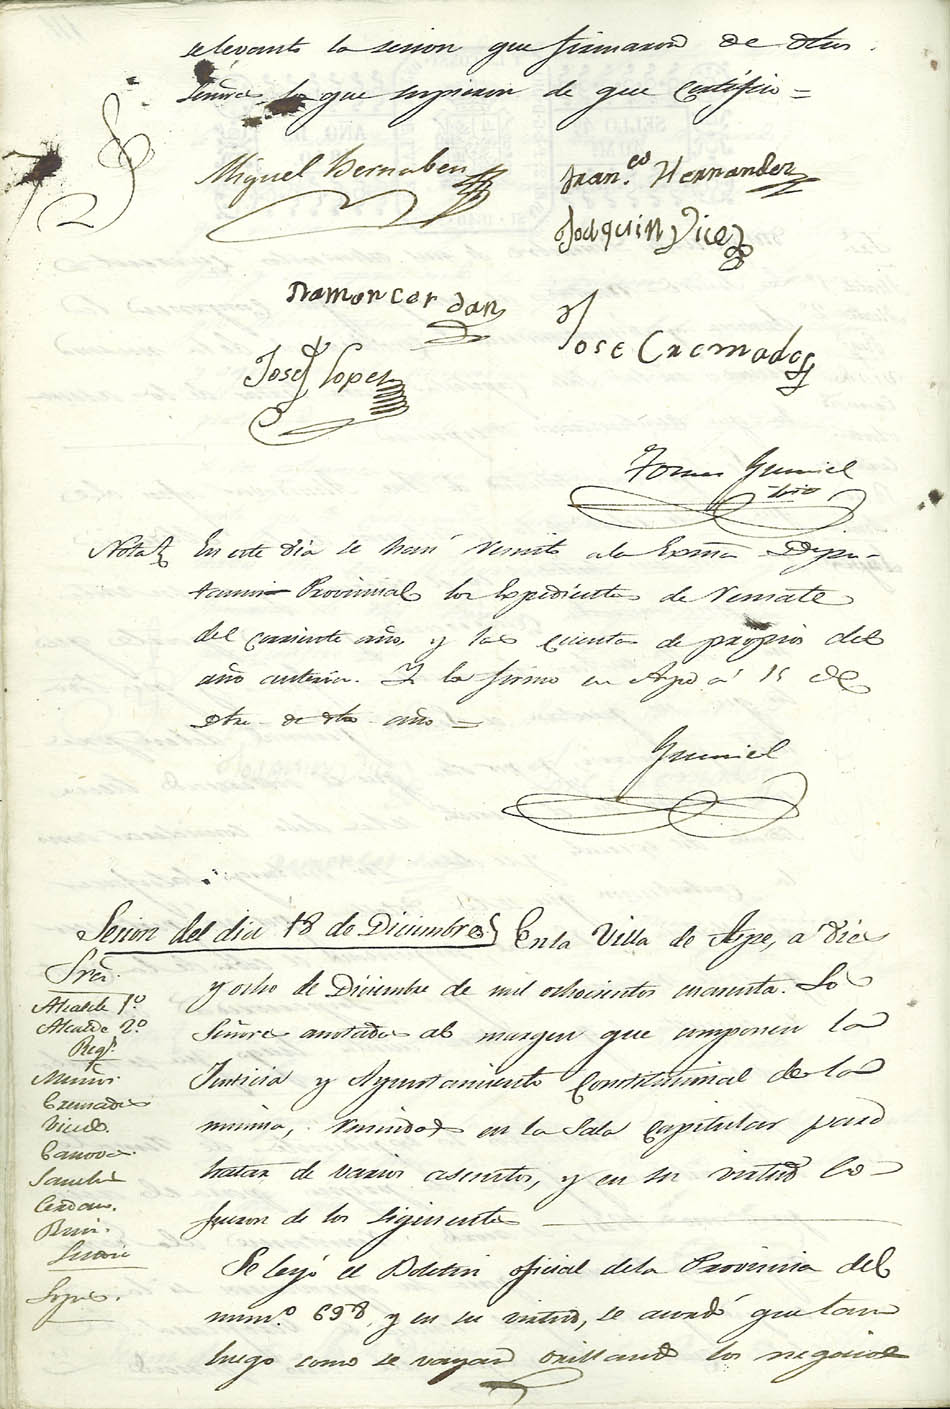 se levantó la sesion que firmaron de dhos
Señores los que supieron de que Certifico =
Miguel Bernabeu
Fran.co Hernandez
Joaquin Vicedo
Ramon Cerdan
Jose Cremades
José Lopez
Tomas Gumiel
Srio
Nota
En este dia se han remito a la Exma Dipu-
tacion Provincial los Expedientes de Remate
del corriente año, y las cuentas de propios del
año anterior. Y lo firmo en Aspe á 15 de
Dbre de dho año =
Gumiel
Sesion del dia 18 de Diciembre
En la Villa de Aspe, a diez
y ocho de Diciembre de mil ochocientos cuarenta. Los
Señores anotados al margen que componen la
Justicia y Ayuntamiento Constitucional de la
misma, reunidos en la Sala Capitular para
tratar de varios asuntos, y en su virtud lo
fueron de los siguientes
Sres.
Alcalde 1º
Alcalde 2º
Regs.
Cremades
Vicedo.
Canovas.
Sanchez
Cerdan.
Sindico
Lopez.
Se leyó el Boletin oficial de la Provincia del
num.º 698, y en su virtud, se acordó que tan
luego como se vayan orillando los negocios